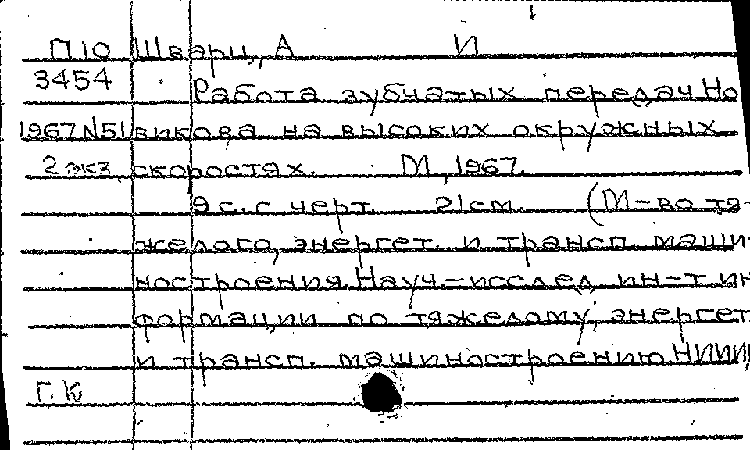 П10 Шварц, А И
3454 Работа зубчатых передач Но
1967 N51 викова на высоких окружных
2 экз. скоростях. М, 1967.
9 с. с черт. 21 см. (М-во тя-
желого, энергет. и трансп. маши-
ностроения. Науч.-исслед. ин-т ин
формации по тяжелому, энергет
и трансп. машиностроению НИИИ
Г. К